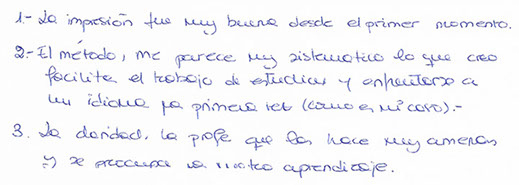 1.- La impresión fue muy buena desde el primer momento.
2.- El método, me parece muy sistematico lo que creo
facilita el trabajo de estudiar y enfrentarse a
un idioma por primera vez (como es mi caso).-
3. La claridad, la profe que las hace muy amenas
y se preocupa de nuestro aprendizaje.